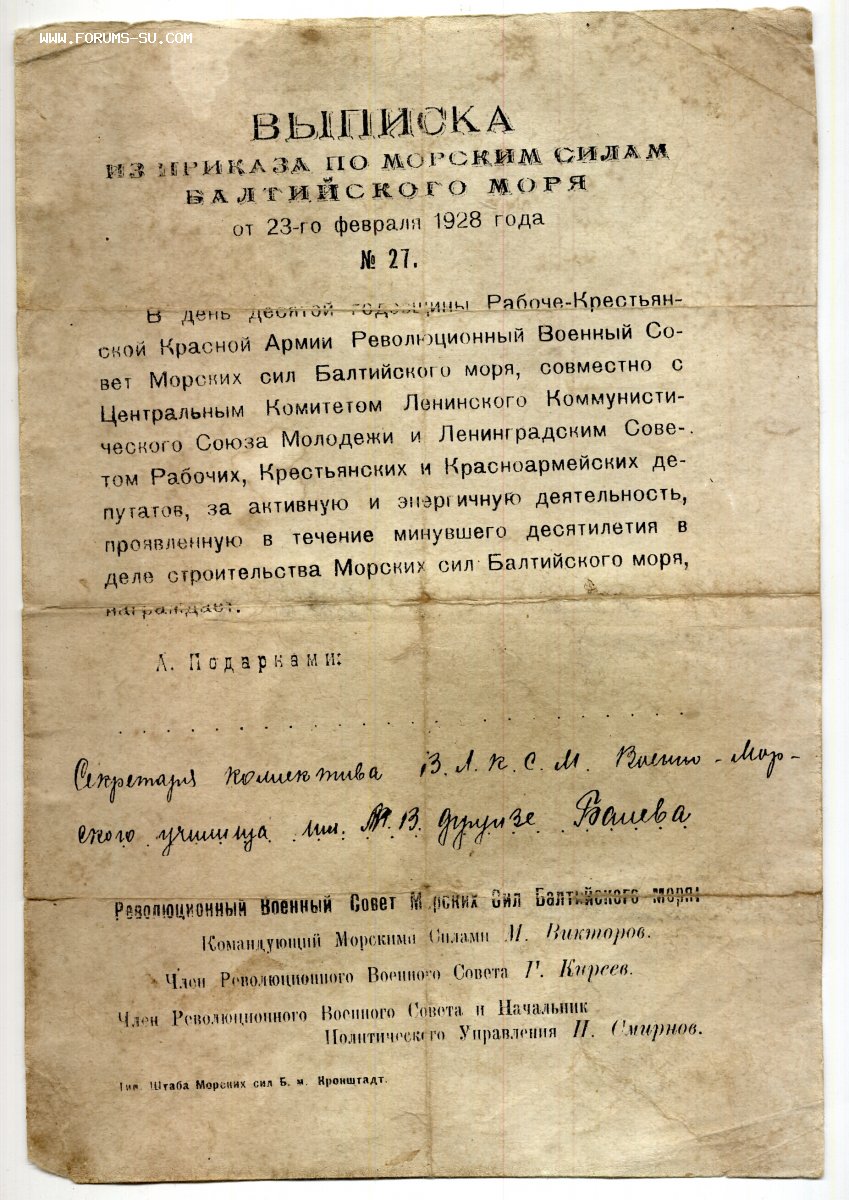 WWW.FORUMS-SU.COM
ВЫПИСКА
ИЗ ПРИКАЗА ПО МОРСКИМ СИЛАМ
БАЛТИЙСКОГО МОРЯ
от 23-го февраля 1928 года
№ 27.
В день десятой годовщины Рабоче-Крестьян-
ской Красной Армии Революционный Военный Со-
вет Морских сил Балтийского моря, совместно с
Центральным Комитетом Ленинского Коммунисти-
ческого Союза Молодежи и Ленинградским Сове-
том Рабочих, Крестьянских и Красноармейских де-
путатов, за активную и энергичную деятельность,
проявленную в течение минувшего десятилетия в
деле строительства Морских сил Балтийского моря,
награждает.
А. Подарками:
Секретаря коллектива В.Л.К.С.М. Военно-Мор-
ского училища им. М.В Фрунзе
Революционный Военный Совет Морских Сил Балтийского моря:
Командующий Морскими Силами М. Викторов.
Член Революционного Военного Совета Г. Киреев.
Член Революционного Военного Совета и Начальник
Политического Управления П. Смирнов.
Тип. Штаба Морских сил Б. м. Кронштадт.